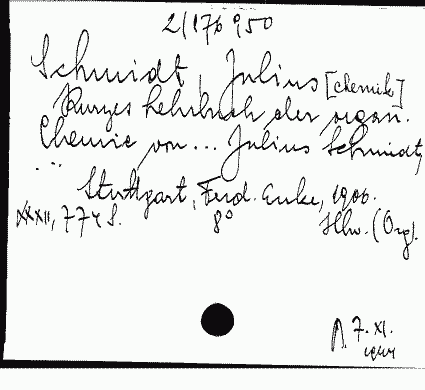 2/176950
Schmidt, Julius [chemik]
Kurzes Lehrbuch der organ.
Chemie von... Julius Schmidt,
...
Stuttgart, Ferd. Enke, 1906.
XXXII, 774 S. 8° Hlw. (Org).
7. XI.